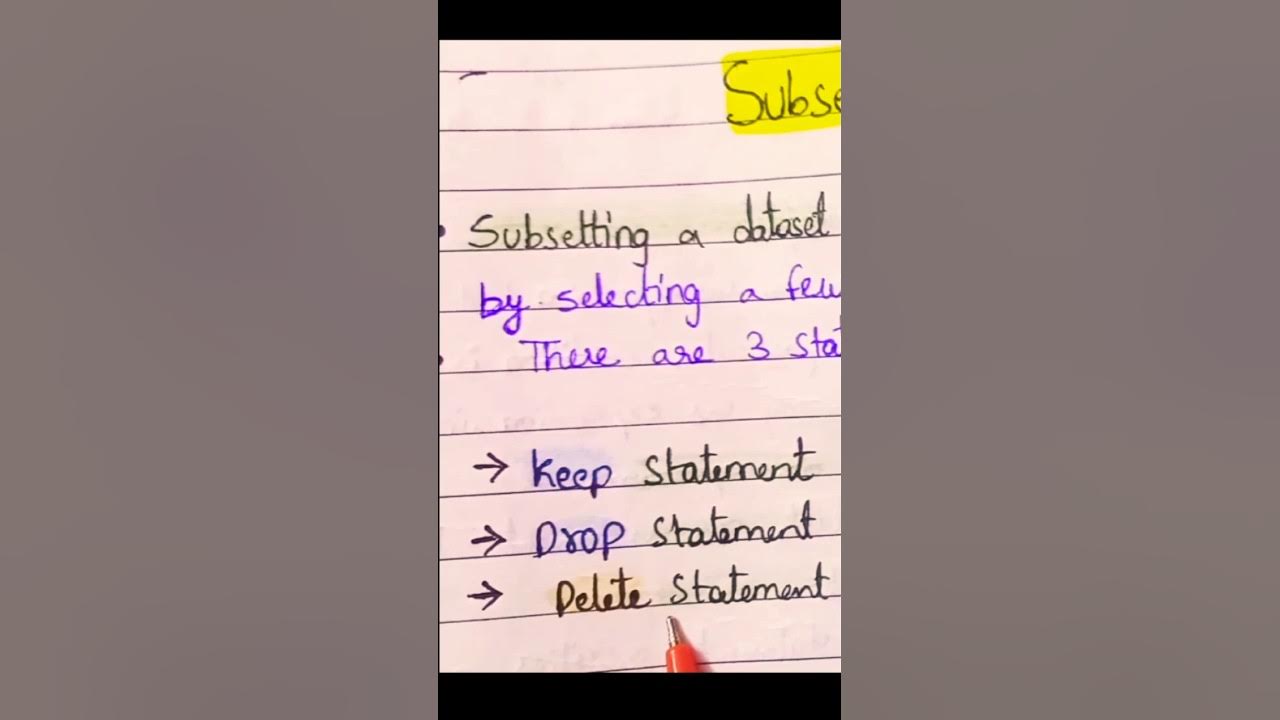 Subse
Subsetting a dataset
by selecting a few
There are 3 sta
→ Keep Statement
→ Drop Statement
→ Delete Statement